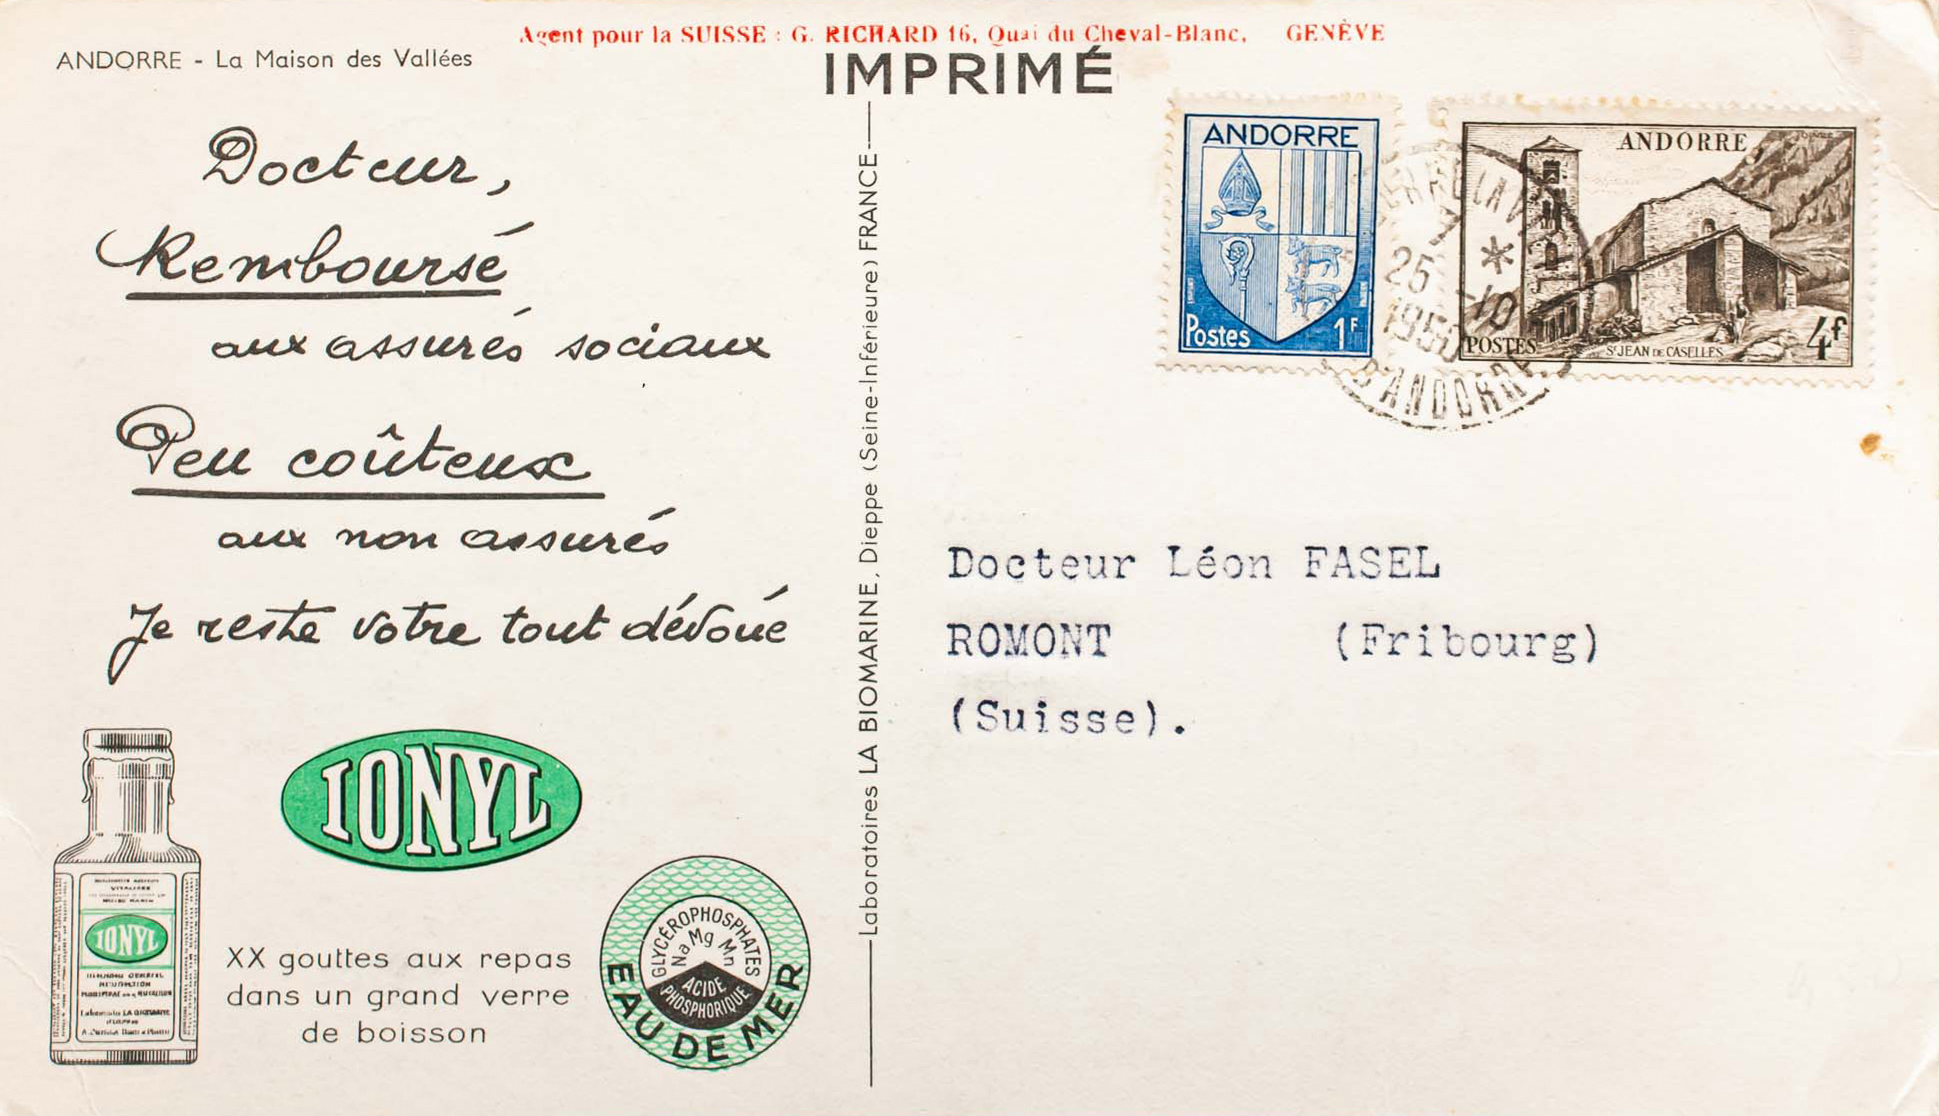 Agent pour la SUISSE : G. RICHARD 16, Quai du Cheval-Blanc, GENÈVE
ANDORRE - La Maison des Vallées
IMPRIMÉ
Docteur,
Remboursé
aux assurés sociaux
Peu coûteux
aux non assurés
Je reste votre tout dévoué
IONYL
IONYL
XX gouttes aux repas
dans un grand verre
de boisson
GLYCÉROPHOSPHATES
Na Mg Mn
ACIDE
PHOSPHORIQUE
EAU DE MER
Laboratoires LA BIOMARINE, Dieppe (Seine-Inférieure) FRANCE
ANDORRE
Postes 1F
ANDORRE
POSTES ST JEAN DE CASELLES 4f
7 *
25 -10
1950
D'ANDORRE
Docteur Léon FASEL
ROMONT (Fribourg)
(Suisse).